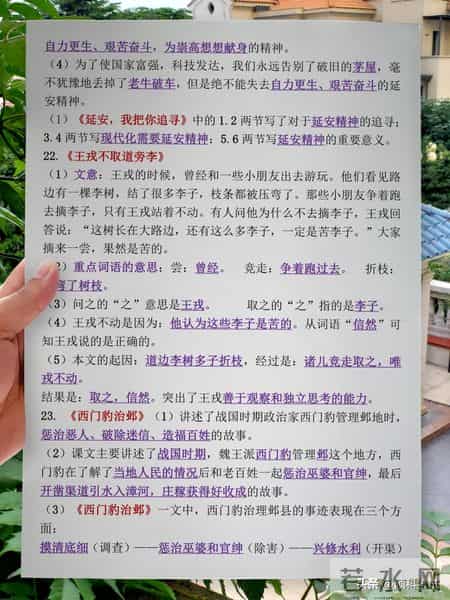 自力更生、艰苦奋斗，为崇高想想献身的精神。
（4）为了使国家富强，科技发达，我们永远告别了破旧的茅屋，毫
不犹豫地丢掉了老牛破车，但是绝不能失去自力更生、艰苦奋斗的延
安精神。
（1）《延安，我把你追寻》中的 1.2 两节写了对于延安精神的追寻；
3.4 两节写现代化需要延安精神；5.6 两节写延安精神的重要意义。
22. 《王戎不取道旁李》
（1）文意：王戎的时候，曾经和一些小朋友出去游玩。他们看见路
边有一棵李树，结了很多李子，枝条都被压弯了。那些小朋友争着跑
去摘李子，只有王戎站着不动。有人问他为什么不去摘李子，王戎回
答说：“这树长在大路边，还有这么多李子，一定是苦李子。”大家
摘来一尝，果然是苦的。
2）重点词语的意思：尝：曾经。 竞走：争着跑过去。 折枝：
弯了树枝。
（3）问之的“之”意思是王戎。 取之的“之”指的是李子。
（4）王戎不动是因为：他认为这些李子是苦的。从词语“信然”可
知王戎说的是正确的。
（5）本文的起因：道边李树多子折枝，经过是：诸儿竞走取之，唯
戎不动。
结果是：取之，信然。突出了王戎善于观察和独立思考的能力。
23. 《西门豹治邺》（1）讲述了战国时期政治家西门豹管理邺地时，
惩治恶人、破除迷信、造福百姓的故事。
（2）课文主要讲述了战国时期，魏王派西门豹管理邺这个地方，西
门豹在了解了当地人民的情况后和老百姓一起惩治巫婆和官绅，最后
开凿渠道引水入漳河，庄稼获得好收成的故事。
（3）《西门豹治邺》一文中，西门豹治理邺县的事迹表现在三个方
面：
摸清底细（调查）——惩治巫婆和官绅（除害）——兴修水利（开渠）
若水网